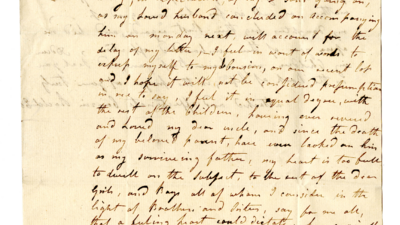 as my loved husband concluded on accompanying
him on monday next will account for the
delay of my letter) I feel in want of words to
express myself to my cousins, on our recent loss
and I hope it will not be considered presumption
in me to say I feel it in equal degree, with
the rest of the children, having ever revered
and loved my dear uncle, and since the death
of my beloved parent, have ever looked on him
as my surviving father, my heart is too full
to dwell on the subject to the rest of the dear
Girls, and Boys all of whom I consider in the
light of Brothers and Sisters, say for me all,
that a feeling heart could dictate